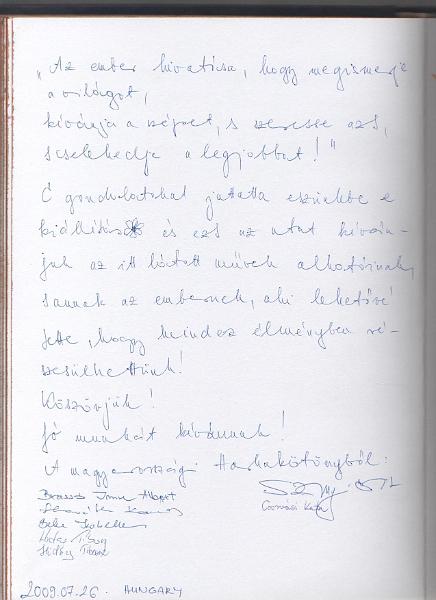 „Az ember hivatása, hogy megismerje
a világot,
kívánja a szépet, s szeresse azt,
s cselekedje a legjobbat!"
E gondolatokat juttatta eszünkbe e
kiállítás és ezt az utat kíván-
juk az itt látott művek alkotóinak,
s annak az embernek, aki lehetővé
tette, hogy mindez élményben ré-
szesülhettünk!
Köszönjük!
Jó munkát kívánunk!
A magyarországi Harkakötönyből:
Csornási Kata
Tibor
2009.07.26. HUNGARY